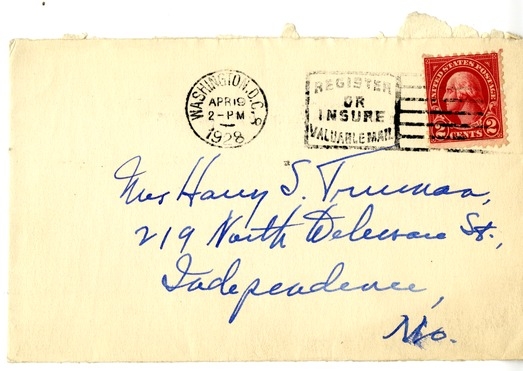 WASHINGTON, D.C. 8
APR 19
2-PM
1928
REGISTER
OR
INSURE
VALUABLE MAIL
UNITED STATES POSTAGE
2 CENTS 2
Mrs Harry S. Truman,
219 North Delaware St.,
Independence,
Mo.